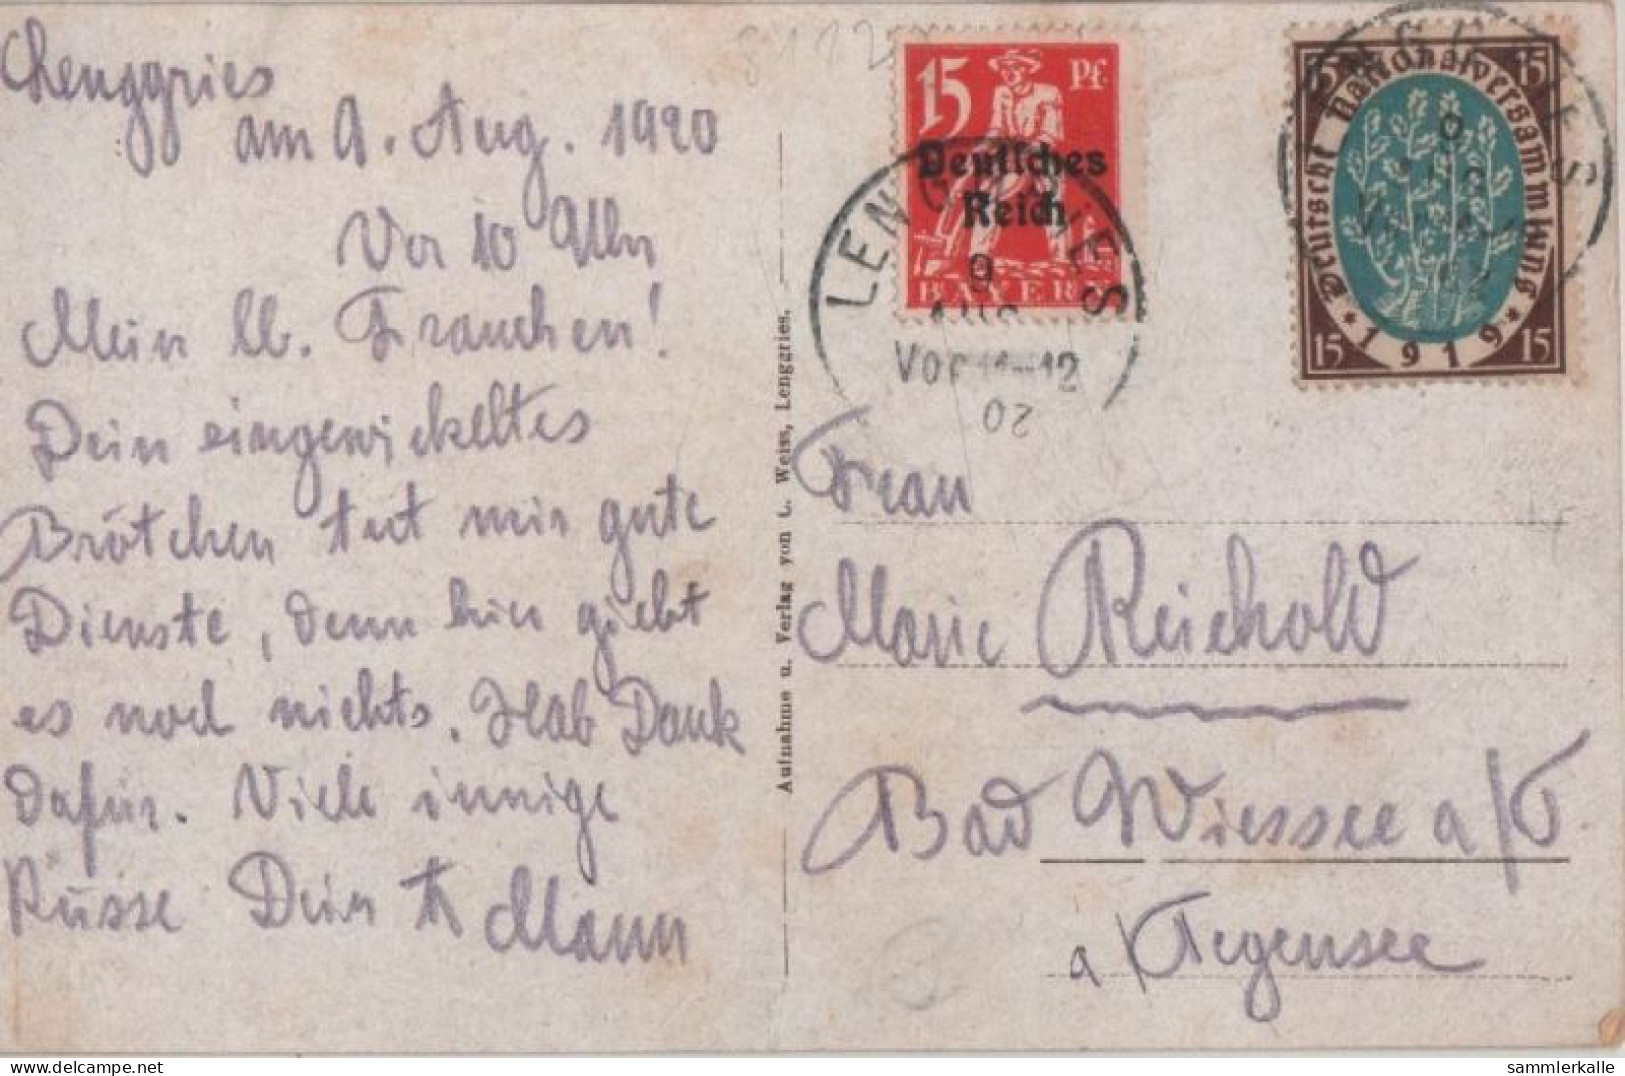 Lenggries
am 9. Aug. 1920
Vor 10 Uhr
Mein lb. Frauchen!
Dein eingewickeltes
Brötchen tut mir gute
Dienste, denn hier giebt
es noch nichts. Hab Dank
dafür. Viele innige
Küsse Dein tr Mann
8112
15 Pf.
Deutsches
Reich
BAYERN
LENGGRIES
9
AUG
Vor 11-12
02
Deutsche Nationalversammlung
15 15
* 1919 *
15 15
LENGGRIES
9
Aufnahme u. Verlag von C. Weiss, Lenggries.
Frau
Marie Reichold
Bad Wiessee a/T
a/Tegernsee
sammlerkalle